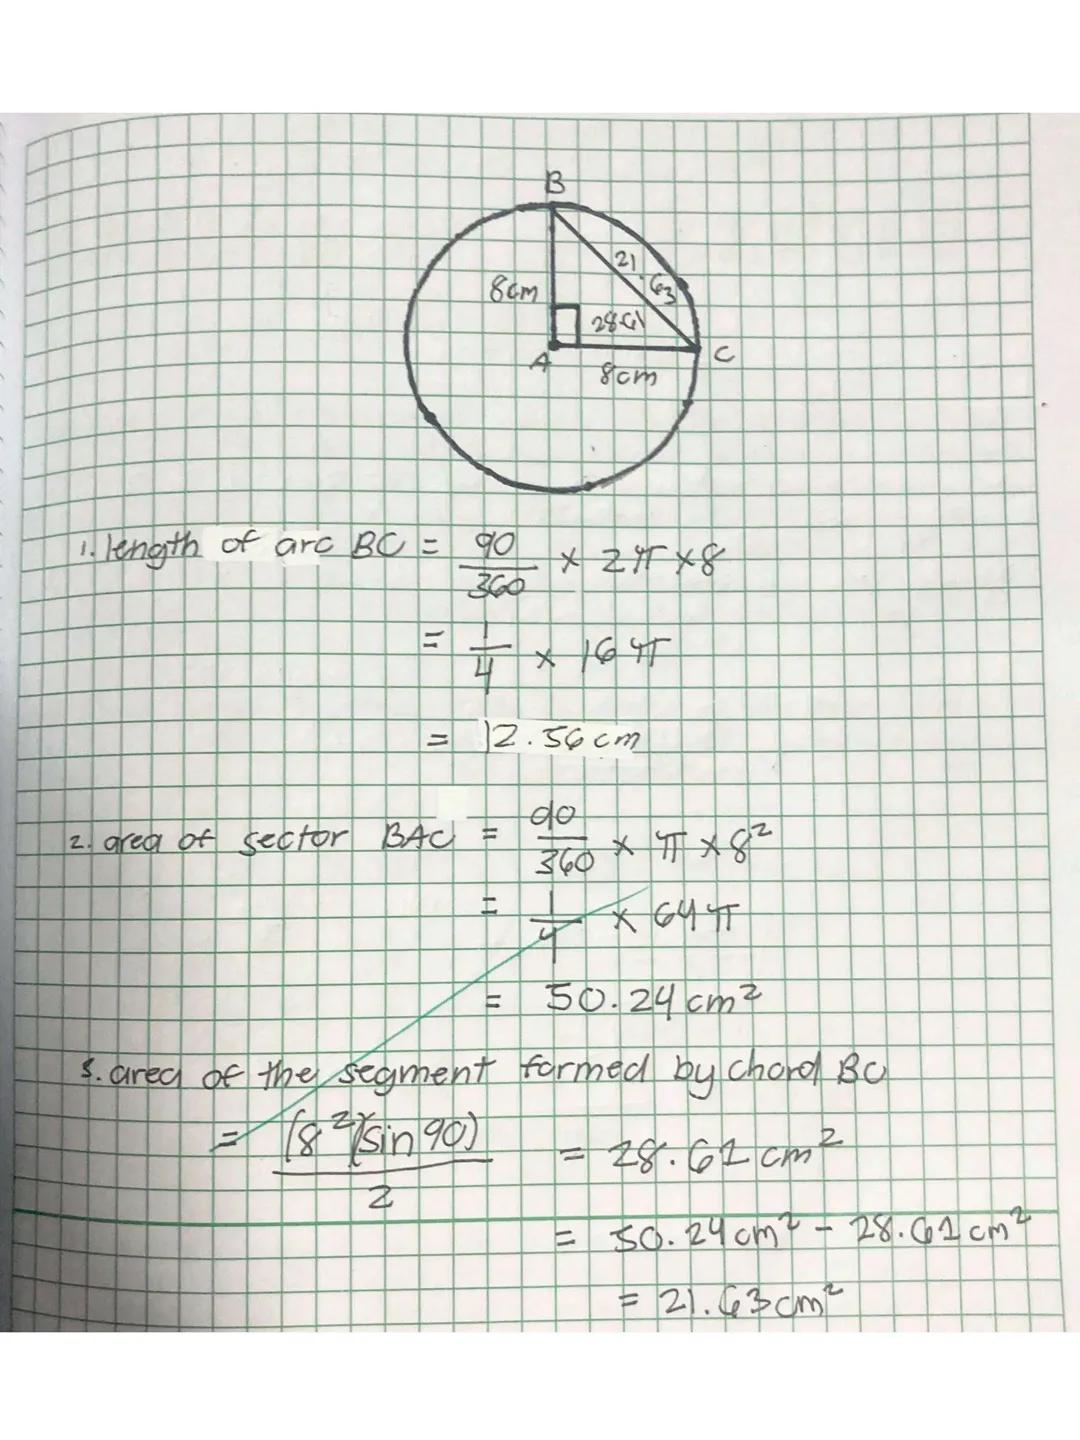 B
21.63
8cm
28.61
A
C
8cm
1. length of arc BC = 90/360 × 2π × 8
= 1/4 × 16π
= 12.56 cm
2. area of sector BAC = 90/360 × π × 8²
= 1/4 × 64π
= 50.24 cm²
3. area of the segment formed by chord BC
= (8²)(sin 90)/2 = 28.61 cm²
= 50.24 cm² - 28.61 cm²
= 21.63 cm²